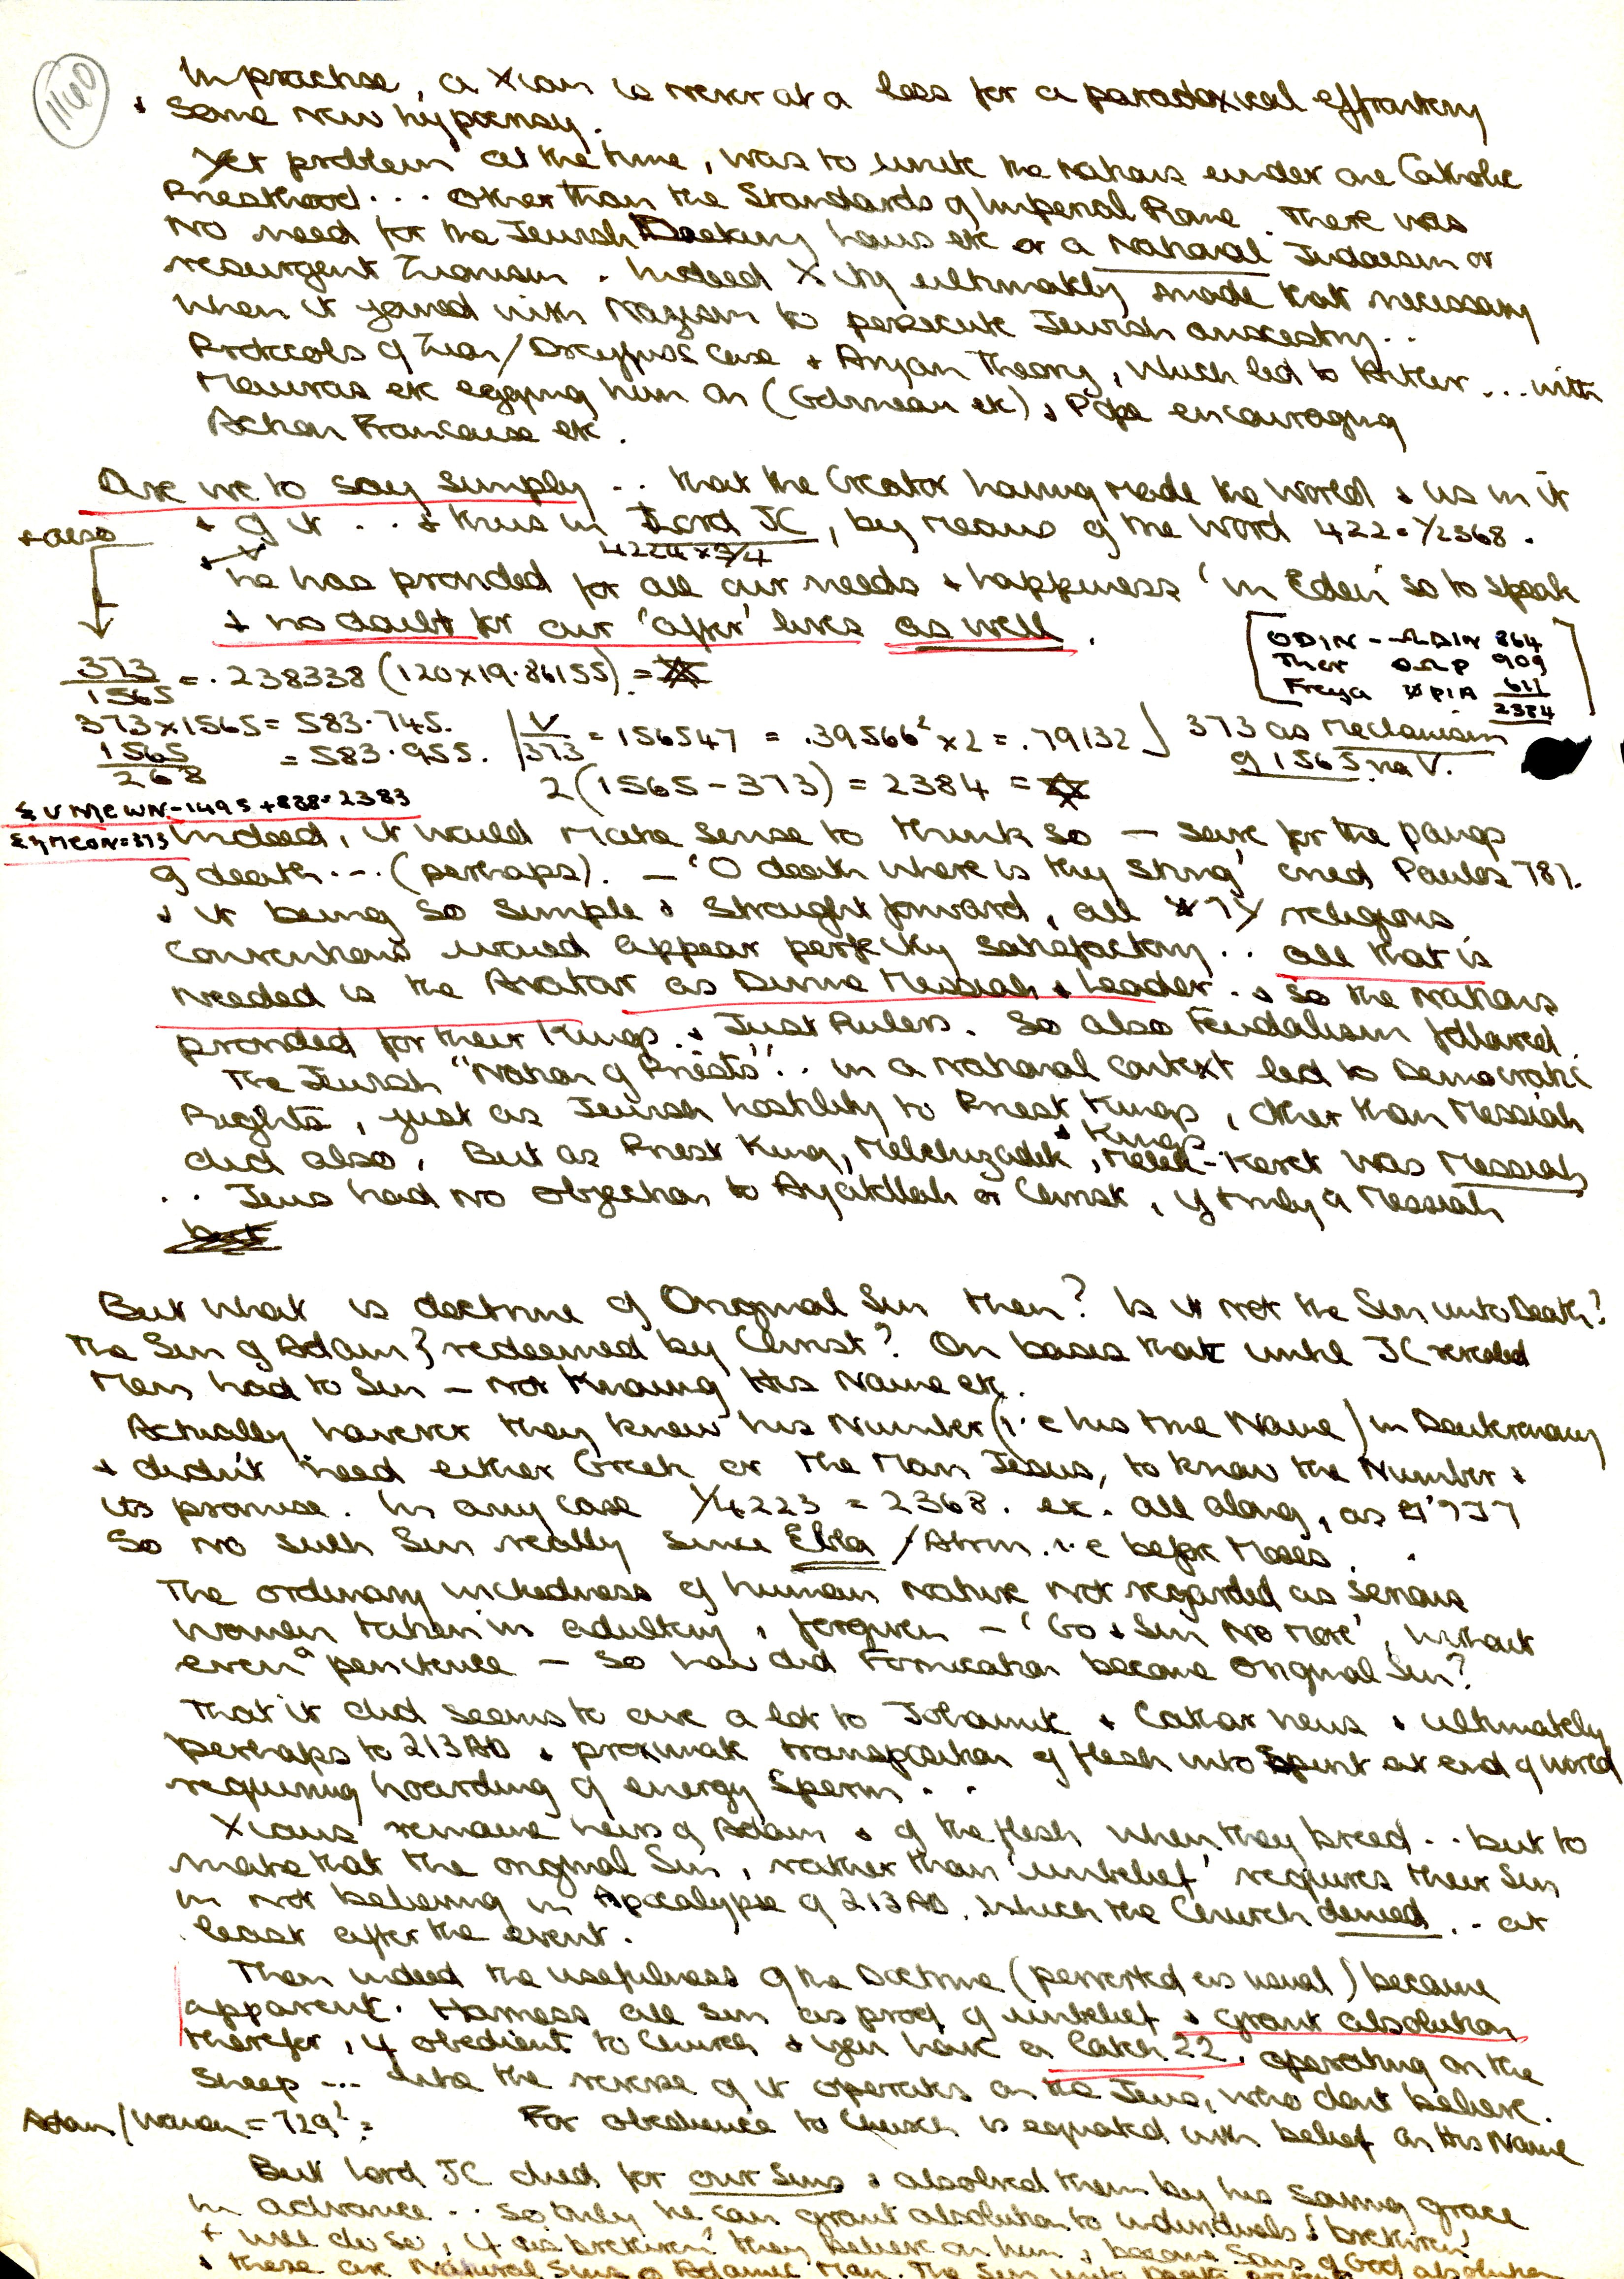 1140
In practise, a Xian is never at a loss for a paradoxical effrontery
+ some new hypocrisy.
Yet problem at the time, was to unite the Nations under one Catholic
Priesthood ... other than the Standards of Imperial Rome. There was
no need for the Jewish laws etc or a National Judaism or
resurgent Zionism. Indeed Xity ultimately made that necessary
when it joined with Nazism to persecute Jewish ancestry..
Protocols of Zion / Dreyfuss Case + Aryan Theory, which led to Hitler ... with
Maurras etc egging him on (Gobineau etc) + Pope encouraging
Action Francaise etc.
Are we to say simply .. that the Creator having made the World + us in it
+ of it .. + thus in Lord JC, by means of the Word 422 = √2368.
+ also
he has provided for all our needs + happiness 'in Eden' so to speak
+ no doubt for our 'after' lives as well.
[ODIN - ΩDIN 864
Thor 909
Freya 611
2384]
373/1565 = .238338 (120 x 19.86155) = ✡
373 x 1565 = 583.745.
1565/268 = 583.955.
√373 = 156547 = .39566² x 2 = .79132 ] 373 as Mechanism
of 1565 via V.
2(1565 - 373) = 2384 = ✡
1495 + 888 = 2383
= 373
Indeed, it would make sense to think so — save for the pangs
of death ... (perhaps). — 'O death where is thy sting' cried Paulos 781.
+ it being so simple + straight forward, all religions
conventions would appear perfectly satisfactory .. all that is
needed is the Avatar as Divine Messiah + Leader. + so the Nations
provided for their Kings + Just Rulers. So also Feudalism followed.
The Jewish "Nation of Priests" .. in a National context led to Democratic
Rights, just as Jewish hostility to Priest Kings, other than Messiah
+ Kings
did also. But as Priest King, Melchizadek, Melek-Keret was Messiah
.. Jews had no objection to Ayatollah or Christ, if truly a Messiah
but
But what is doctrine of Original Sin then? Is it not the Sin unto Death?
The Sin of Adam } redeemed by Christ? On basis that until JC revealed
Men had to Sin — not Knowing His Name etc.
Actually however they knew his Number (i.e his true Name) in Deuteronomy
+ didn't need either Greek or the Man Jesus, to know the Number +
its promise. In any case √4223 = 2368. etc. all along, as
So no such Sin really since Ebla / Abrm .i.e before Moses.
The ordinary wickedness of human Nature not regarded as serious
women taken in adultery, forgiven — 'Go + Sin No More', without
even a penitence — so how did Fornication become Original Sin?
That it did seems to owe a lot to Johannite + Cathar views + ultimately
perhaps to 213 AD + proximate transposition of flesh into Spirit at end of world
requiring hoarding of energy sperm ..
Xians remaine heirs of Adam + of the flesh when they breed .. but to
make that the original Sin, rather than 'unbelief' requires their Sin
in not believing in Apocalypse of 213 AD. which the Church denied .. at
least after the event.
Then indeed the usefulness of the Doctrine (perverted as usual) became
apparent. Harness all sin as proof of unbelief + grant absolution
therefor, if obedient to Church + you have a Catch 22, operating on the
sheep ... like the reverse of it operates on the Jews, who dont believe.
Adam / Woman = 729² =
For obedience to Church is equated with belief on His Name
But Lord JC died for our sins + absolved them by his saving grace
in advance .. so only he can grant absolution to individuals + brethren
+ will do so, if as brethren they believe on him + become Sons of God
+ these are Natural Sins of Adamic Man. The Sin unto Death